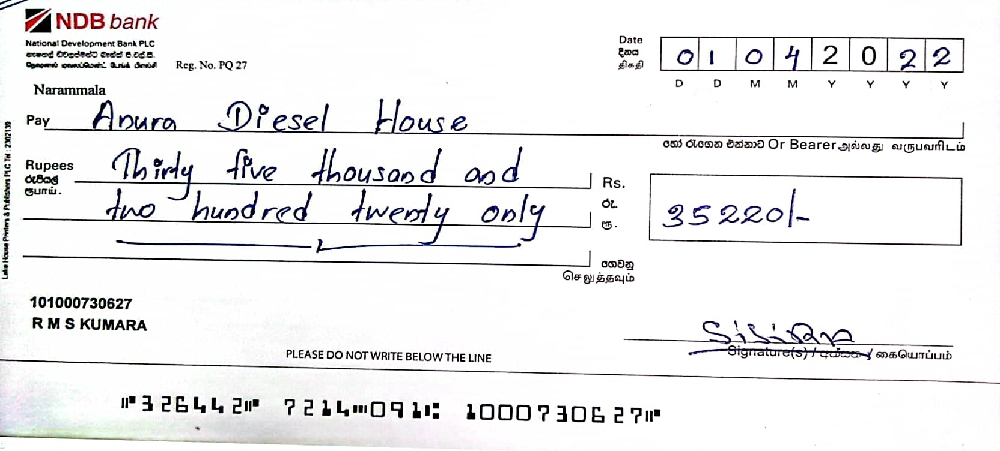 NDB bank
National Development Bank PLC
Reg. No. PQ 27
Narammala
Date
දිනය
திகதி
0 1 0 4 2 0 2 2
D D M M Y Y Y Y
Pay Anura Diesel House
හෝ රැගෙන එන්නාට Or Bearer அல்லது வருபவரிடம்
Rupees Thirty five thousand and
රුපියල්
ரூபாய்.
two hundred twenty only
Rs.
රු.
ரூ.
35220/-
ගෙවනු
செலுத்தவும்
101000730627
R M S KUMARA
Signature(s) / / கையொப்பம்
PLEASE DO NOT WRITE BELOW THE LINE
⑈326442⑈ 7214⑉091⑆ 1000730627⑈
Lake House Printers & Publishers PLC Tel : 2302139